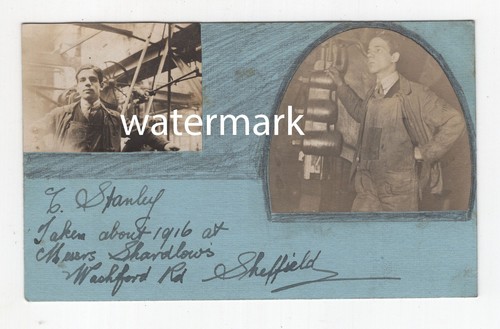 watermark
T. Stanley
Taken about 1916 at
Messrs Shardlow's
Washford Rd Sheffield